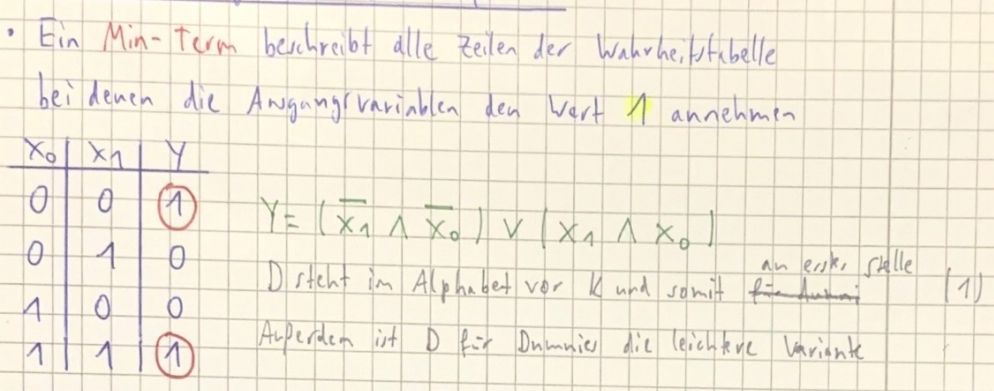 • Ein Min-Term beschreibt alle Zeilen der Wahrheitstabelle
bei denen die Ausgangsvariablen den Wert 1 annehmen
X₀ | X₁ | Y
0 | 0 | 1
0 | 1 | 0
1 | 0 | 0
1 | 1 | 1
Y = (x̅₁ ∧ x̅₀) ∨ (x₁ ∧ x₀)
an erster Stelle
D steht im Alphabet vor K und somit (1)
Außerdem ist D für Dummies die leichtere Variante